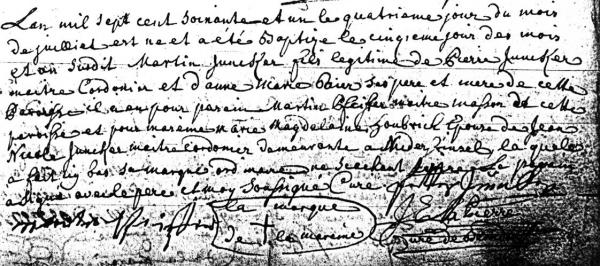 L'an mil sept cent soixante et un le quatrieme jour du mois
de juilliet est ne et a été Baptizé le cinqieme jour des mois
et an susdit Martin Juncker fils legitime de Pierre Juncker
maitre Cordonier et d'anne Marie ses pere et mere de cette
Paroisse il a eu pour parain Martin Pfeiffer maitre masson de cette
paroisse et pour mareine Marie Magdelaine Houbrick Epouse de Jean
Nicole Juncker maitre cordonier demeurante a Niderzinsel laquelle
a fait icy bas sa marque ordinaire ne sachant le parain
a signé avec le pere et moy Soussigné Curé
la marque
de + la mareine
Curé de